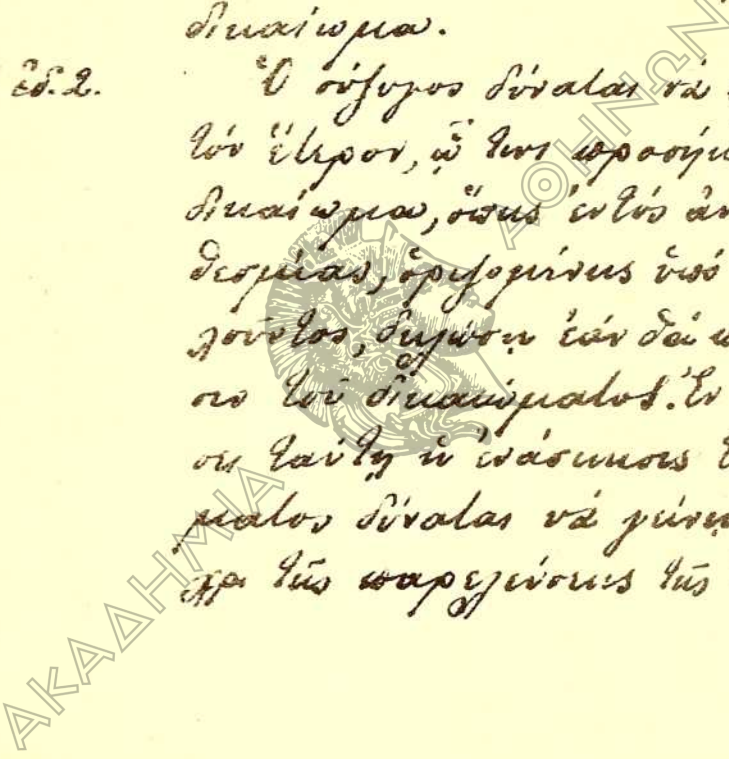 δικαίωμα.
ἐδ. 2. Ὁ σύζυγος δύναται νά
τόν ἕτερον, ᾧτινι προσήκει
δικαίωμα, ὅπως ἐντός
θεσμίας, ὁριζομένης ὑπό
λοῦντος, δηλώσῃ ἐάν θά
τοῦ δικαιώματος. Ἐν
σει ταύτῃ ἡ ἐνάσκησις
ματος δύναται νά γίνῃ
χρι τῆς παρελεύσεως τῆς
ΑΚΑΔΗΜΙΑ
ΑΘΗΝΩΝ